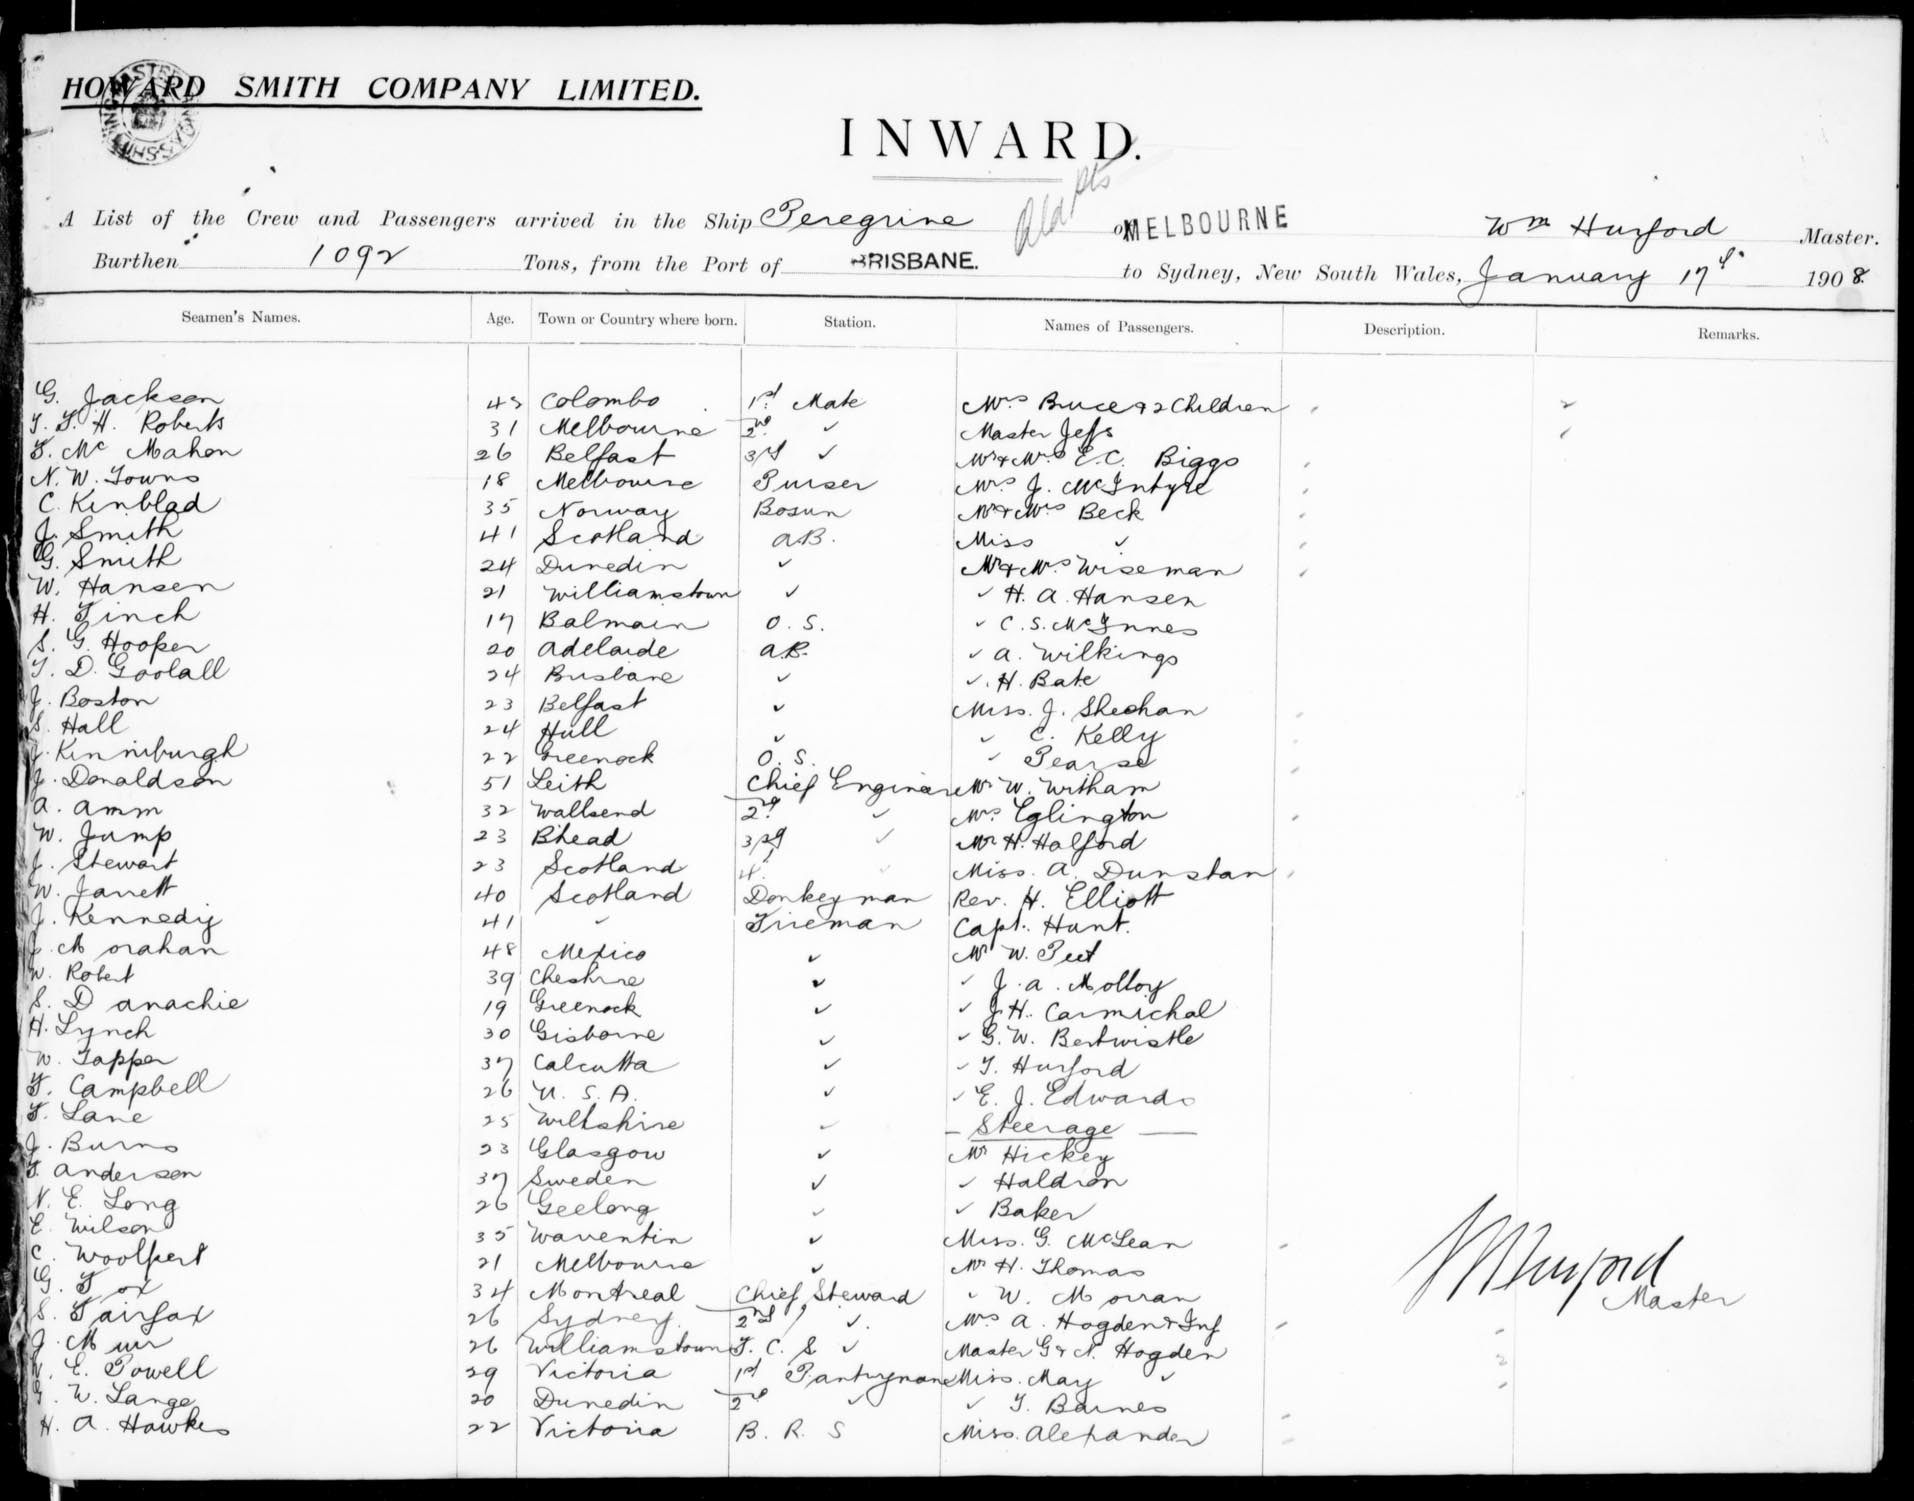 HOWARD SMITH COMPANY LIMITED.
INWARD.
A List of the Crew and Passengers arrived in the Ship Peregrine of MELBOURNE Wm Hurford Master.
Burthen 1092 Tons, from the Port of BRISBANE. to Sydney, New South Wales, January 17th 1908.
Seamen's Names. Age. Town or Country where born. Station. Names of Passengers. Description. Remarks.
G. Jackson 42 Colombo 1st Mate Mrs Bruce & 2 Children 2
T. F. H. Roberts 31 Melbourne 2nd ✓ Master Jeffs
F. Mc Mahon 26 Belfast 3rd ✓ Mr & Mrs E.C. Biggs
N. W. Towns 18 Melbourne Purser Mrs J. McIntyre
C. Kinblad 35 Norway Bosun Mr & Mrs Beck
J. Smith 41 Scotland A.B. Miss ✓
G. Smith 24 Dunedin ✓ Mr & Mrs Wiseman
W. Hansen 21 Williamstown ✓ ✓ H. A. Hansen
H. Finch 17 Balmain O. S. ✓ C. S. McInnes
S. G. Hooper 20 Adelaide A.B. ✓ A. Wilkings
T. D. Goolall 24 Brisbane ✓ ✓ H. Bate
J. Boston 23 Belfast ✓ Miss. J. Sheehan
S. Hall 24 Hull ✓ ✓ C. Kelly
J. Kinniburgh 22 Greenock O. S. ✓ Pearse
J. Donaldson 51 Leith Chief Engineer Mr W. Witham
A. Amm 32 Wallsend 2nd ✓ Mrs Eglington
W. Jump 23 B'head 3rd ✓ Mr H. Halford
J. Stewart 23 Scotland 4. ✓ Miss. A. Dunstan
W. Jarrett 40 Scotland Donkeyman Rev. H. Elliott
J. Kennedy 41 ✓ Fireman Capt. Hunt.
J. Morahan 48 Mexico ✓ Mr W. Peet
W. Robert 39 Cheshire ✓ ✓ J. A. Molloy
S. Danachie 19 Greenock ✓ ✓ J. H. Carmichal
H. Lynch 30 Gisborne ✓ ✓ G. W. Bertwistle
W. Tapper 37 Calcutta ✓ ✓ T. Hurford
F. Campbell 26 U. S. A. ✓ ✓ E. J. Edwards
F. Lane 25 Wiltshire ✓ — Steerage —
J. Burns 23 Glasgow ✓ Mr Hickey
F. Anderson 37 Sweden ✓ ✓ Haldron
N. E. Long 26 Geelong ✓ ✓ Baker
E. Wilson 35 Waventin ✓ Miss. G. McLean
C. Woolfert 21 Melbourne ✓ Mr H. Thomas
G. Fox 34 Montreal Chief Steward ✓ W. Morran
S. Fairfax 26 Sydney. 2nd ✓ Mrs A. Hogden & Inf
J. Muir 26 Williamstown F. C. S ✓ Master G & N. Hogden 2
E. Powell 29 Victoria 1st Pantryman Miss. May ✓
W. Lange 20 Dunedin 2nd ✓ ✓ T. Barnes
H. A. Hawkes 22 Victoria B. R. S Miss. Alexander
Hurford
Master